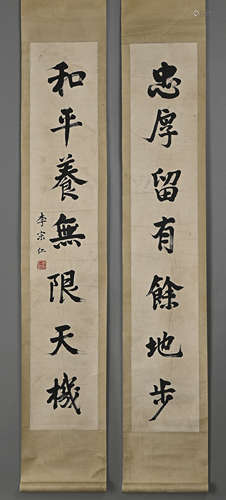 忠厚留有餘地步
和平養無限天機
李宗仁